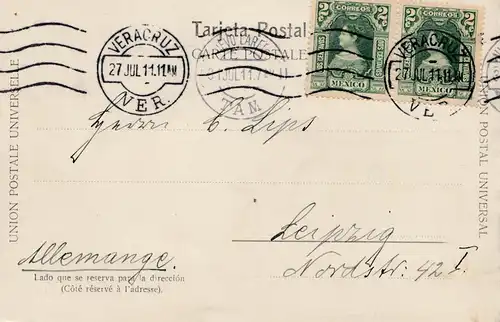 Tarjeta Postal
CARTE POSTALE
VERACRUZ
27 JUL 11. 11 AM
VER.
NUEVO LAREDO
JUL 11. 7
TAM.
2 CORREOS 2
MEXICO
2 CORREOS 2
MEXICO
VERACRUZ
27 JUL 11.
VE
UNION POSTALE UNIVERSELLE
UNION POSTALE UNIVERSAL
Herrn C. Lips
Leipzig
Nordstr. 42 I.
Allemange.
Lado que se reserva para la dirección
(Côté réservé à l'adresse).